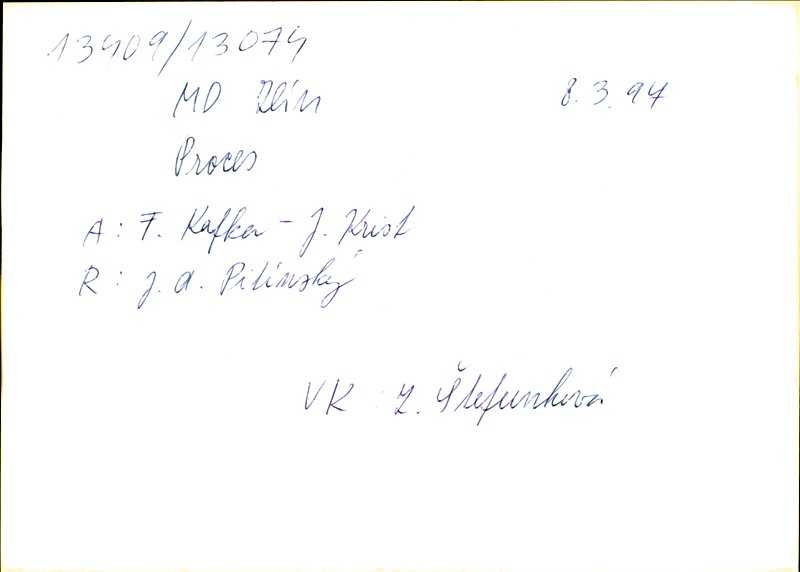 13409/13074
MD Zlín 8.3.94
Proces
A: F. Kafka - J. Krist
R: J. A. Pitínský
VK: Z. Štefunková